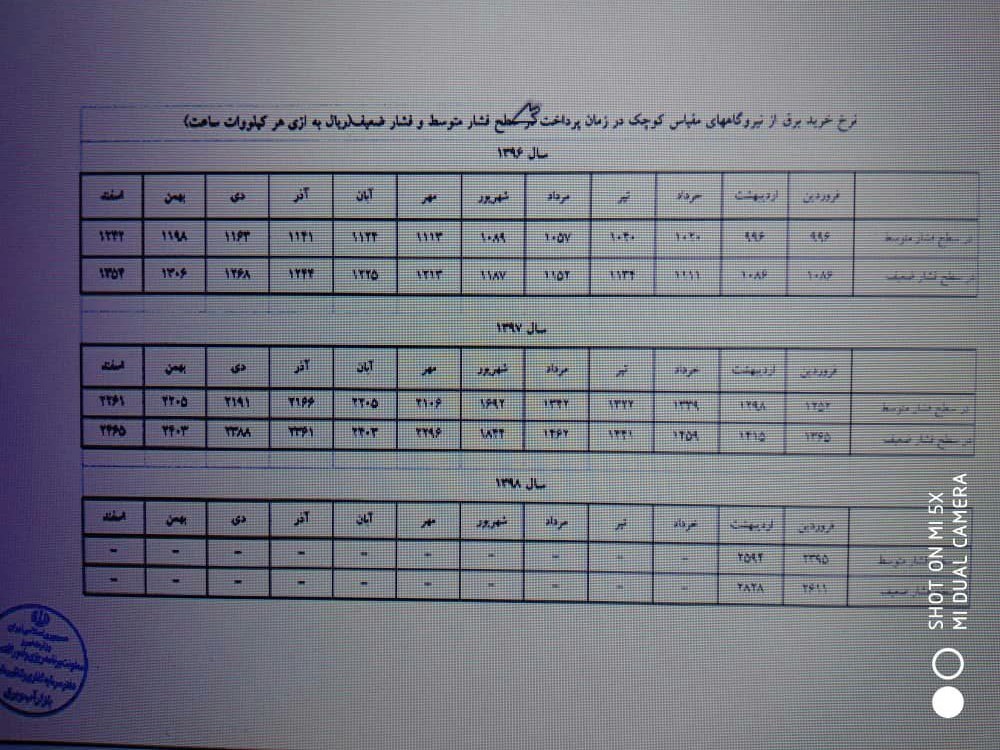 نرخ خرید برق از نیروگاههای مقیاس کوچک در زمان پرداخت در سطح فشار متوسط و فشار ضعیف(ریال به ازی هر کیلووات ساعت)
سال ۱۳۹۶
فروردین اردیبهشت خرداد تیر مرداد شهریور مهر آبان آذر دی بهمن اسفند
در سطح فشار متوسط ۹۹۶ ۹۹۶ ۱۰۲۰ ۱۰۴۰ ۱۰۵۷ ۱۰۸۹ ۱۱۱۳ ۱۱۲۴ ۱۱۴۱ ۱۱۶۳ ۱۱۹۸ ۱۲۴۲
در سطح فشار ضعیف ۱۰۸۶ ۱۰۸۶ ۱۱۱۱ ۱۱۳۴ ۱۱۵۲ ۱۱۸۷ ۱۲۱۳ ۱۲۲۵ ۱۲۴۴ ۱۲۶۸ ۱۳۰۶ ۱۳۵۴
سال ۱۳۹۷
فروردین اردیبهشت خرداد تیر مرداد شهریور مهر آبان آذر دی بهمن اسفند
در سطح فشار متوسط ۱۲۵۲ ۱۲۹۸ ۱۳۳۹ ۱۳۲۲ ۱۳۴۲ ۱۶۹۲ ۲۱۰۶ ۲۲۰۵ ۲۱۶۶ ۲۱۹۱ ۲۲۰۵ ۲۲۶۱
در سطح فشار ضعیف ۱۳۶۵ ۱۴۱۵ ۱۴۵۹ ۱۴۴۱ ۱۴۶۲ ۱۸۴۴ ۲۲۹۶ ۲۴۰۳ ۲۳۶۱ ۲۳۸۸ ۲۴۰۳ ۲۴۶۵
سال ۱۳۹۸
فروردین اردیبهشت خرداد تیر مرداد شهریور مهر آبان آذر دی بهمن اسفند
فشار متوسط ۲۳۹۵ ۲۵۹۴ - - - - - - - - - -
فشار ضعیف ۲۶۱۱ ۲۸۲۸ - - - - - - - - - -
جمهوری اسلامی ایران
وزارت نیرو
بازار آب و برق
SHOT ON MI 5X
MI DUAL CAMERA